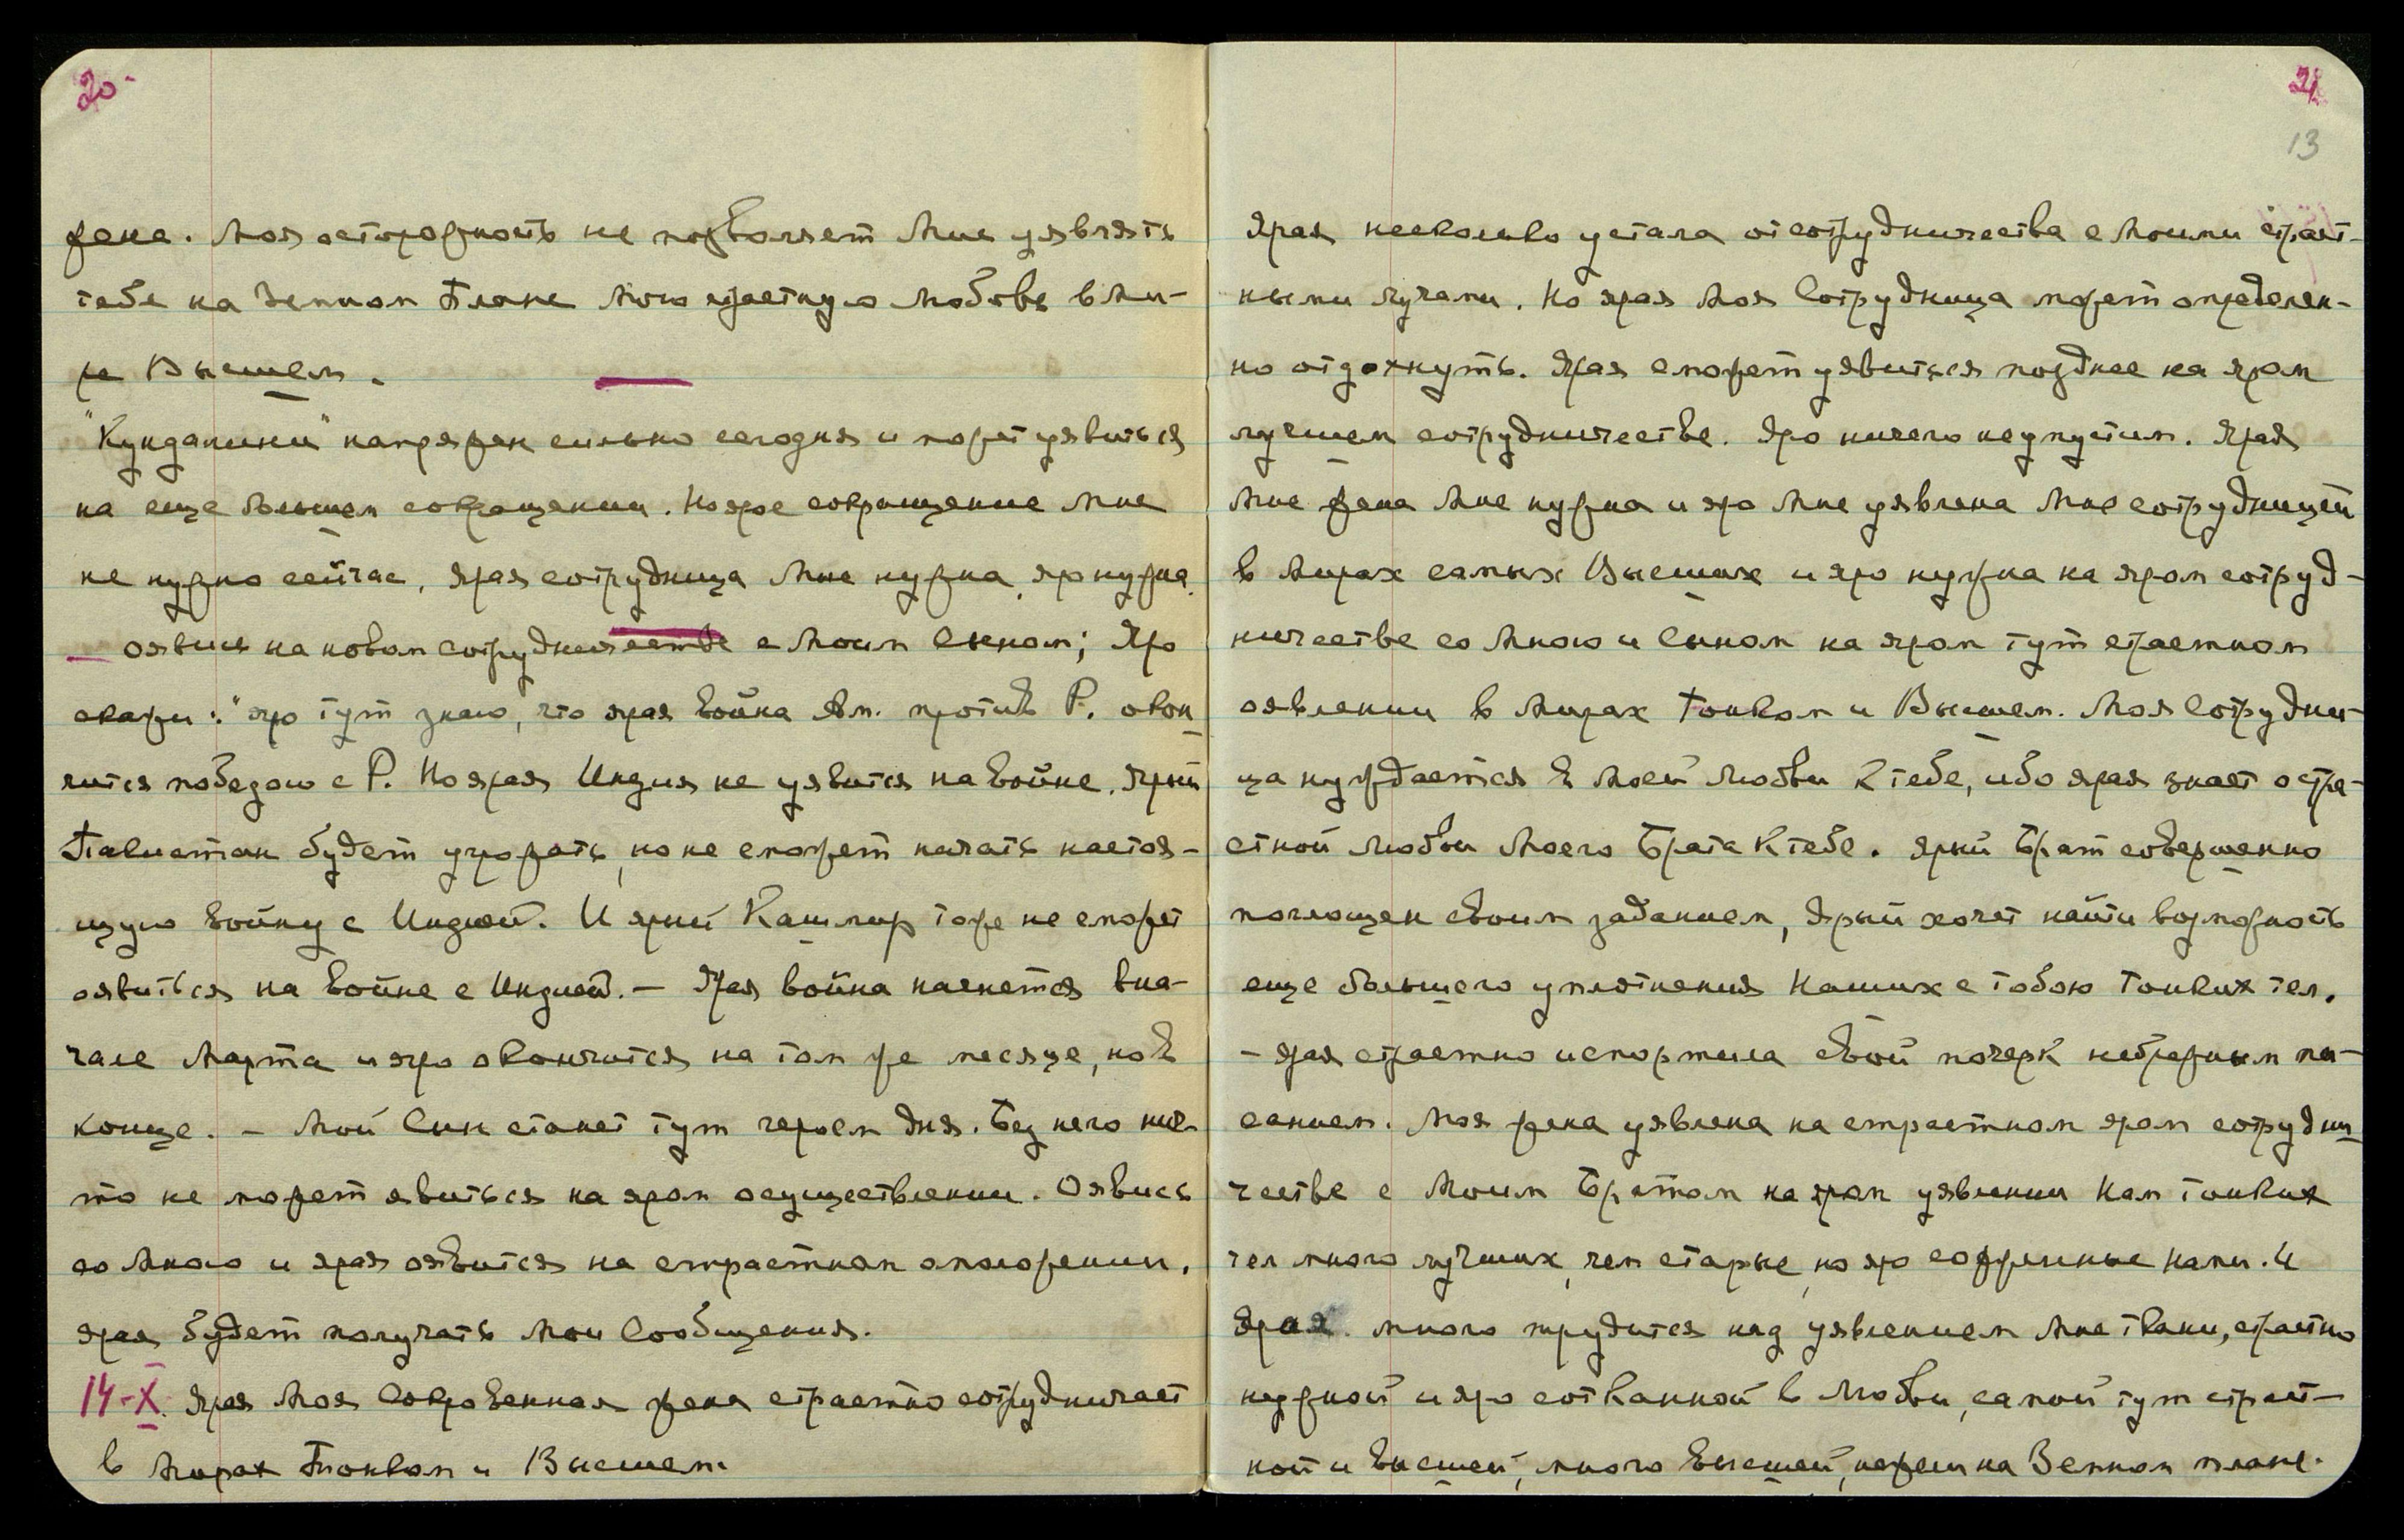 20
жена. Моя осторожность не позволяет Мне уявлять
тебе на Земном Плане Мою страстную Любовь в Ми-
ре Высшем.
"Кундалини" напряжен сильно сегодня и может уявиться
на еще большем сокращении. Но ярое сокращение Мне
не нужно сейчас, Ярая сотрудница Мне нужна, яро нужна.
— оявись на новом сотрудничестве с Моим Сыном; Яро
скажи: "яро тут знаю, что ярая война Ам. против Р. окон
чится победою с Р. Но ярая Индия не уявится на войне. Ярый
Пакистан будет угрожать, но не сможет начать настоя-
щую войну с Индией. И ярый Кашмир тоже не сможет
оявиться на войне с Индией. — Ярая война начнется вна-
чале Марта и яро окончится на том же месяце, но в
конце. — Мой Сын станет тут героем дня. Без него ник-
то не может явиться на яром осуществлении. Оявись
со Мною и ярая оявится на страстном омоложении.
ярая будет получать Мои Сообщения.
14-X. Ярая Моя Сокровенная жена страстно сотрудничает
в Мирах Тонком и Высшем.
21
13
Ярая несколько устала от сотрудничества с Моими страст-
ными лучами. Но ярая Моя Сотрудница может определен-
но отдохнуть. Ярая сможет уявиться позднее на яром
лучшем сотрудничестве. Яро ничего не упустим. Ярая
Мне жена Мне нужна и яро Мне уявлена Мне сотрудницей
в Мирах самых Высших и яро нужна на яром сотруд-
ничестве со Мною и Сыном на яром тут страстном
оявлении в Мирах Тонком и Высшем. Моя Сотрудни-
ца нуждается в Моей Любви к тебе, ибо ярая знает о стра-
стной Любви Моего Брата к тебе. Ярый Брат совершенно
поглощен своим заданием, Ярый хочет найти возможность
еще большего уплотнения Наших с тобою тонких тел.
— ярая страстно испортила свой почерк небрежным пи-
санием. Моя жена уявлена на страстном яром сотрудни
честве с Моим Братом на яром уявлении Нам тонких
тел много лучших, чем старые, но яро сожженные Нами. И
Ярая много трудится над уявлением Мне ткани, страстно
нужной и яро сотканной в Любви, самой тут страст-
ной и высшей, много высшей, нежели на Земном плане.